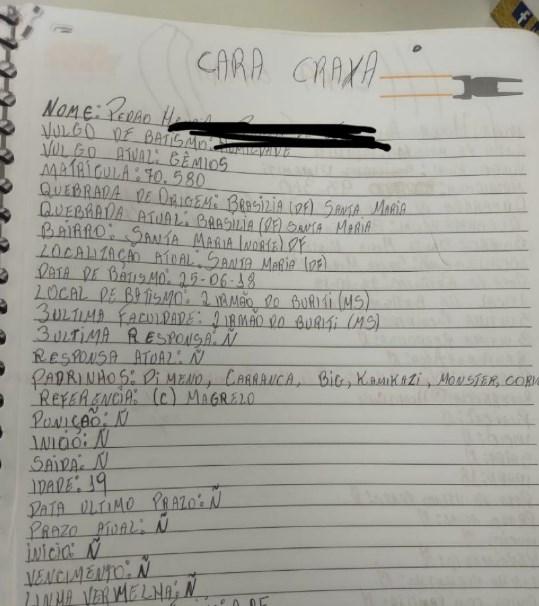 CARA CRAXA
NOME: PEDRO
VULGO DE BATISMO:
VULGO ATUAL: GÊMIOS
MATRÍCULA: 70.580
QUEBRADA DE ORIGEM: BRASÍLIA (DF) SANTA MARIA
QUEBRADA ATUAL: BRASÍLIA (DF) SANTA MARIA
BAIRRO: SANTA MARIA (NORTE) DF
LOCALIZAÇÃO ATUAL: SANTA MARIA (DF)
DATA DE BATISMO: 25-06-18
LOCAL DE BATISMO: 2 IRMÃO DO BURITI (MS)
3 ULTIMA FACULDADE: 2 IRMÃO DO BURITI (MS)
3 ULTIMA RESPONSA: Ñ
RESPONSA ATUAL: Ñ
PADRINHOS: DI MENO, CARRANCA, BIG, KAMIKAZI, MONSTER,
REFERENCIA: (C) MAGRELO
PUNIÇÃO: Ñ
INICIO: Ñ
SAIDA: Ñ
IDADE: 19
DATA ULTIMO PRAZO: Ñ
PRAZO ATUAL: Ñ
INICIO: Ñ
VENCIMENTO: Ñ
LINHA VERMELHA: Ñ